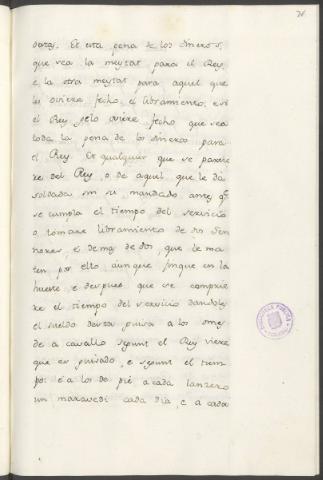 dores. Et esta pena de los dineros,
que sea la meytat para el Rey,
e la otra meytat para aquel que
les oviere fecho el libramiento, e si
el Rey gelo oviere fecho que sea
toda la pena de los dineros para
el Rey. Et qualquier que se partie
re del Rey, o de aquel que le dà
soldada sin su mandado antes qe
se cumpla el tiempo del servicio
o tomare libramiento de dos Sen
nores, e de mas de dos, que le ma
ten por ello, aunque finque en la
hueste e despues que se comprie
re el tiempo del servicio dandoles
el sueldo a los omes
de a cavallo segunt el Rey viere
que es guisado, e segunt el tiem
po: e a los de pie a cada lanzero
un maravedi cada dia, e a cada